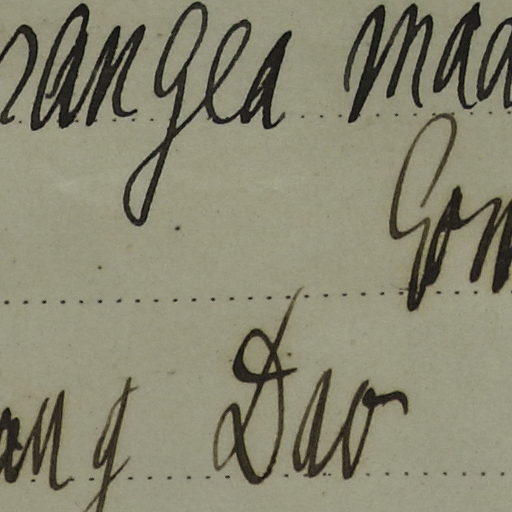 rangea maa
Gom
ang Dao